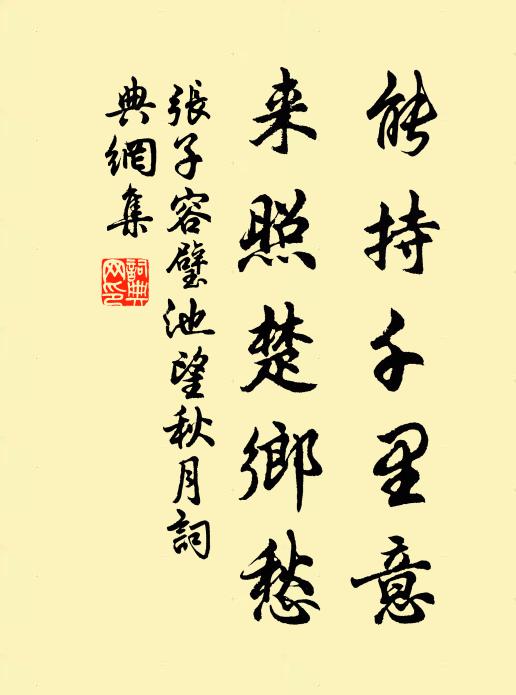 能持千里意
来照楚鄉愁
張子容璧池望秋月詞
典網集
詞典
网印